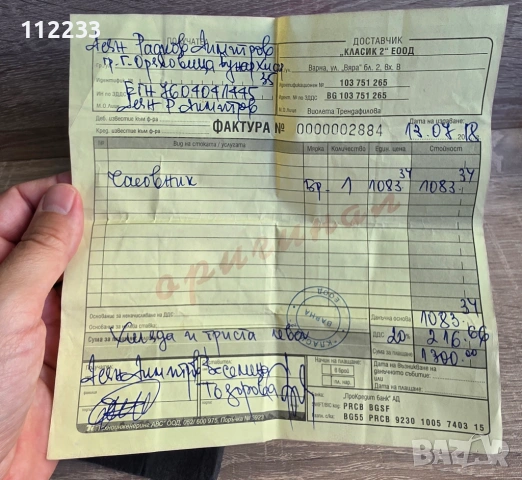 112233
ПОЛУЧАТЕЛ
Асен Радков Димитров
гр. Г. Оряховица
ЕГН 7604041445
Асен Р. Димитров
ДОСТАВЧИК
„КЛАСИК 2" ЕООД
Варна, ул. „Вяра" бл. 2, Вх. В
103 751 265
BG 103 751 265
Виолета Трендафилова
Деб. известие към ф-ра
Кред. известие към ф-ра
ФАКТУРА № 0000002884
Дата на издаване
17.07.2018
№ Вид на стоката / услугата Мярка Количество Един. цена Стойност
Часовник Бр. 1 1083 34 1083 34
оригинал
Основание за неначисляване на ДДС:
Данъчна основа 1083 34
Основание за нулева ставка:
ДДС 20% 216.66
Сума за плащане 1300.00
хиляда и триста лева
КЛАСИК 2 ЕООД ВАРНА
Асен Димитров Веселина
Тодорова
Начин на плащане:
В брой
пл. нар.
Дата на възникване на
данъчното събитие:
или
Дата на плащане:
„ПроКредит банк" АД
PRCB BGSF
BG55 PRCB 9230 1005 7403 15
BAZAR.bg